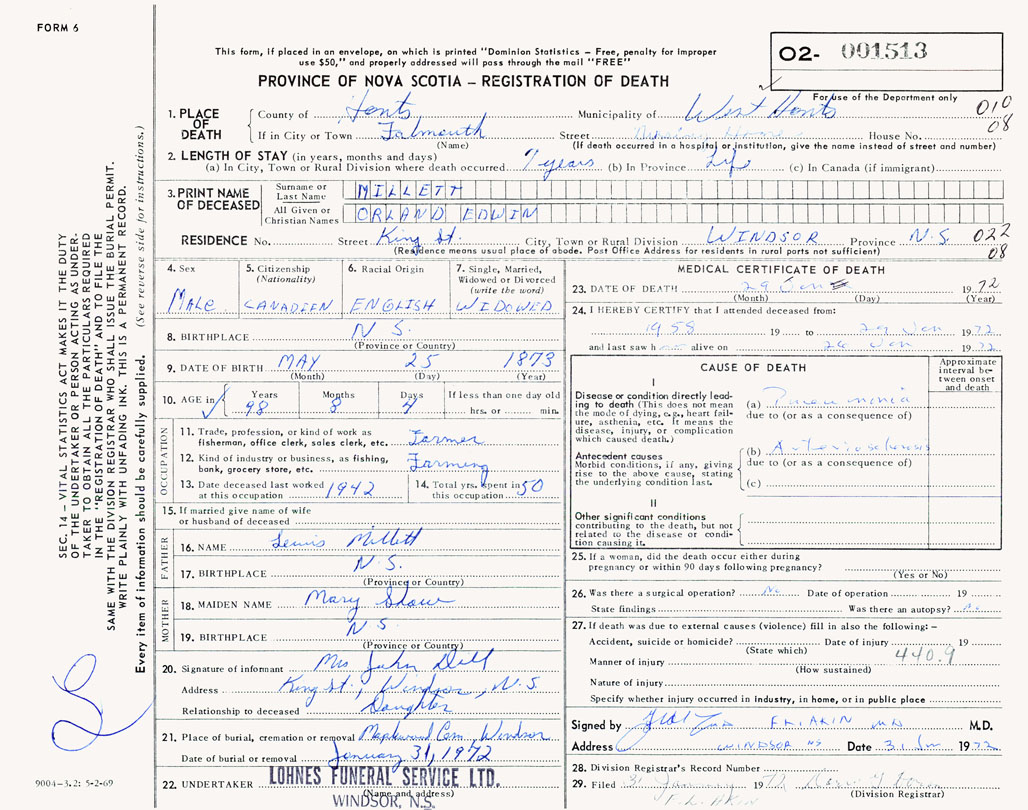 FORM 6
This form, if placed in an envelope, on which is printed "Dominion Statistics – Free, penalty for improper
use $50," and properly addressed will pass through the mail "FREE"
PROVINCE OF NOVA SCOTIA – REGISTRATION OF DEATH
O2- 001513
For use of the Department only
1. PLACE OF DEATH
County of Hants Municipality of West Hants 010
If in City or Town Falmouth Street House No. 08
(Name) (If death occurred in a hospital or institution, give the name instead of street and number)
2. LENGTH OF STAY (in years, months and days)
(a) In City, Town or Rural Division where death occurred 7 years (b) In Province Life (c) In Canada (if immigrant)
3. PRINT NAME OF DECEASED
Surname or Last Name MILLETT
All Given or Christian Names ORLAND EDWIN
RESIDENCE No. Street King St. City, Town or Rural Division WINDSOR Province N.S. 022
(Residence means usual place of abode. Post Office Address for residents in rural parts not sufficient) 08
4. Sex
Male
5. Citizenship
(Nationality)
CANADIEN
6. Racial Origin
ENGLISH
7. Single, Married,
Widowed or Divorced
(write the word)
WIDOWED
8. BIRTHPLACE N S.
(Province or Country)
9. DATE OF BIRTH MAY 25 1873
(Month) (Day) (Year)
10. AGE in Years Months Days If less than one day old
98 8 4 hrs. or min.
OCCUPATION
11. Trade, profession, or kind of work as
fisherman, office clerk, sales clerk, etc. Farmer
12. Kind of industry or business, as fishing,
bank, grocery store, etc. Farming
13. Date deceased last worked
at this occupation 1942
14. Total yrs. spent in
this occupation 50
15. If married give name of wife
or husband of deceased
FATHER
16. NAME Lewis Millett
17. BIRTHPLACE N.S.
(Province or Country)
MOTHER
18. MAIDEN NAME Mary Shaw
19. BIRTHPLACE N S.
(Province or Country)
20. Signature of informant Mrs John Dill
Address King St., Windsor, N.S.
Relationship to deceased Daughter
21. Place of burial, cremation or removal Maplewood Cem. Windsor
Date of burial or removal January 31, 1972
22. UNDERTAKER LOHNES FUNERAL SERVICE LTD.
(Name and address)
WINDSOR, N.S.
MEDICAL CERTIFICATE OF DEATH
23. DATE OF DEATH 29 Jan 1972
(Month) (Day) (Year)
24. I HEREBY CERTIFY that I attended deceased from:
1958 19 to 29 Jan 1972
and last saw h alive on 26 Jan 1972
CAUSE OF DEATH
Approximate
interval be-
tween onset
and death
I
Disease or condition directly lead-
ing to death (This does not mean
the mode of dying, e.g., heart fail-
ure, asthenia, etc. It means the
disease, injury, or complication
which caused death.)
(a) Pneumonia
due to (or as a consequence of)
Antecedent causes
Morbid conditions, if any, giving
rise to the above cause, stating
the underlying condition last.
(b) Arteriosclerosis
due to (or as a consequence of)
(c)
II
Other significant conditions
contributing to the death, but not
related to the disease or condi-
tion causing it.
25. If a woman, did the death occur either during
pregnancy or within 90 days following pregnancy?
(Yes or No)
26. Was there a surgical operation? No Date of operation 19
State findings Was there an autopsy? No
27. If death was due to external causes (violence) fill in also the following: –
Accident, suicide or homicide? Date of injury 19
(State which)
Manner of injury 440.9
(How sustained)
Nature of injury
Specify whether injury occurred in industry, in home, or in public place
Signed by MD M.D.
Address WINDSOR NS Date 31 Jan 1972
28. Division Registrar's Record Number
29. Filed 31 January 1972
(Division Registrar)
SEC. 14 – VITAL STATISTICS ACT MAKES IT THE DUTY
OF THE UNDERTAKER OR PERSON ACTING AS UNDER-
TAKER TO OBTAIN ALL THE PARTICULARS REQUIRED
IN THE "REGISTRATION OF DEATH" AND TO FILE THE
SAME WITH THE DIVISION REGISTRAR WHO SHALL ISSUE THE BURIAL PERMIT.
WRITE PLAINLY WITH UNFADING INK. THIS IS A PERMANENT RECORD.
Every item of information should be carefully supplied. (See reverse side for instructions.)
9004-3.2: 5-2-69